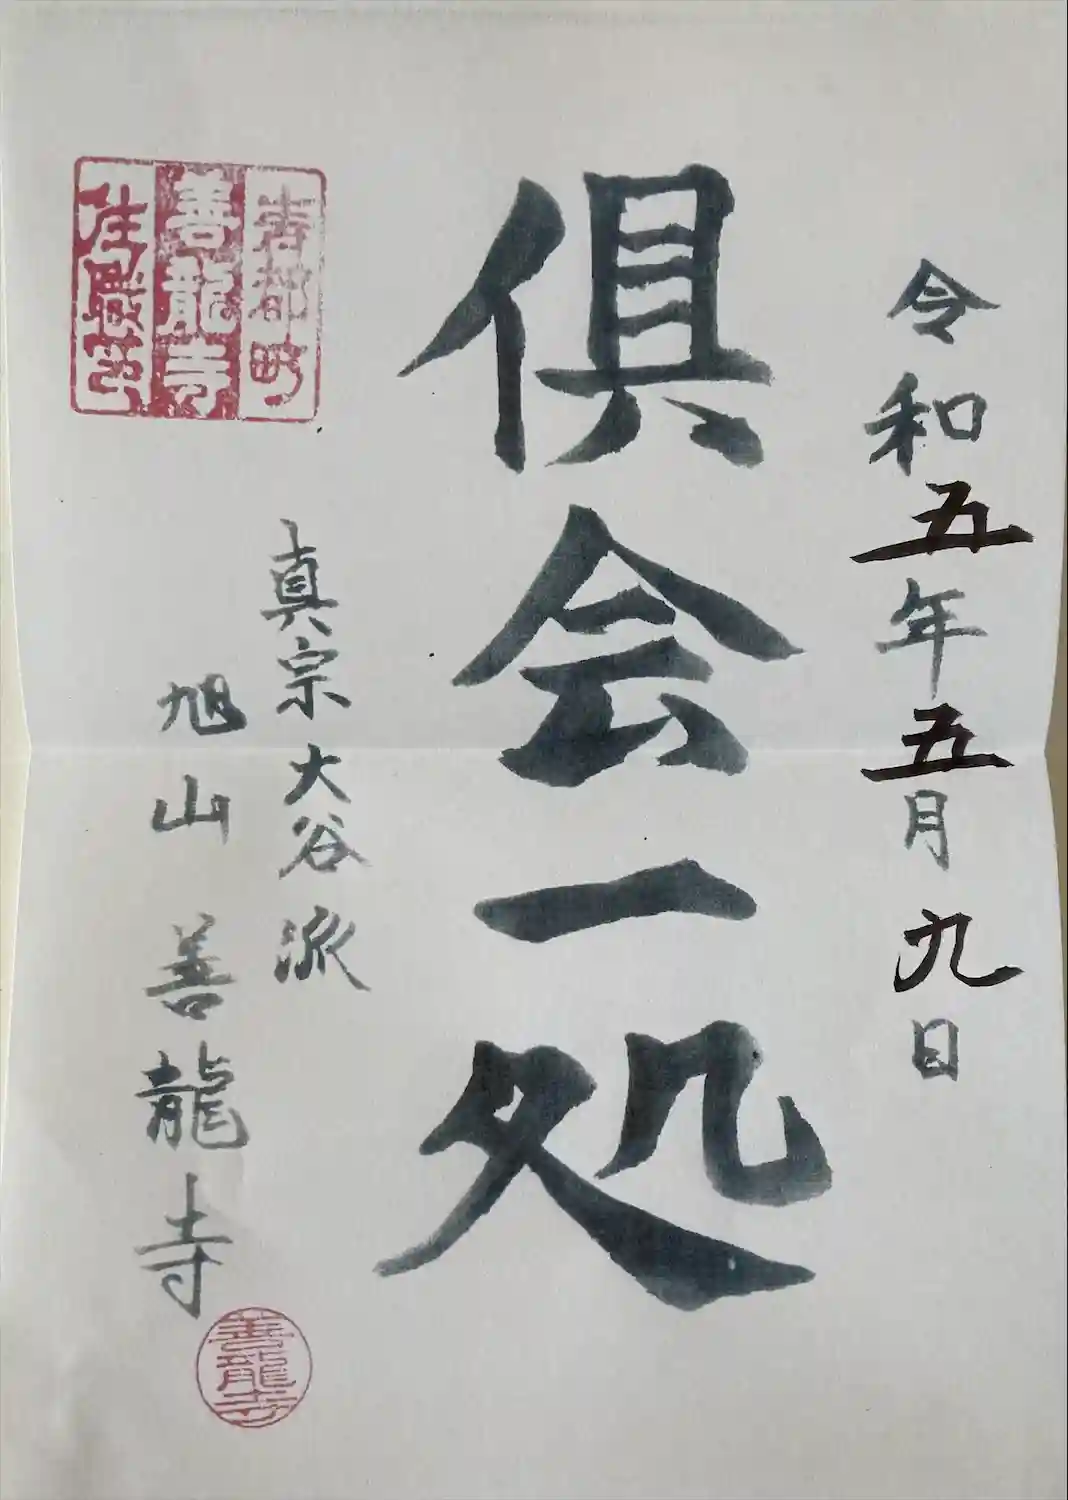 令和五年五月九日
俱会一処
真宗大谷派
旭山 善龍寺
善龍寺
住職印
善龍寺